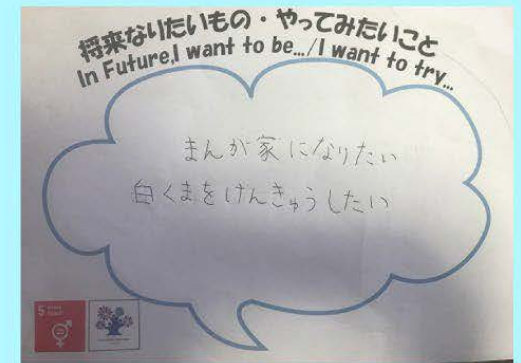 将来なりたいもの・やってみたいこと
In Future,I want to be.../I want to try...
まんが家になりたい
白くまをけんきゅうしたい
5